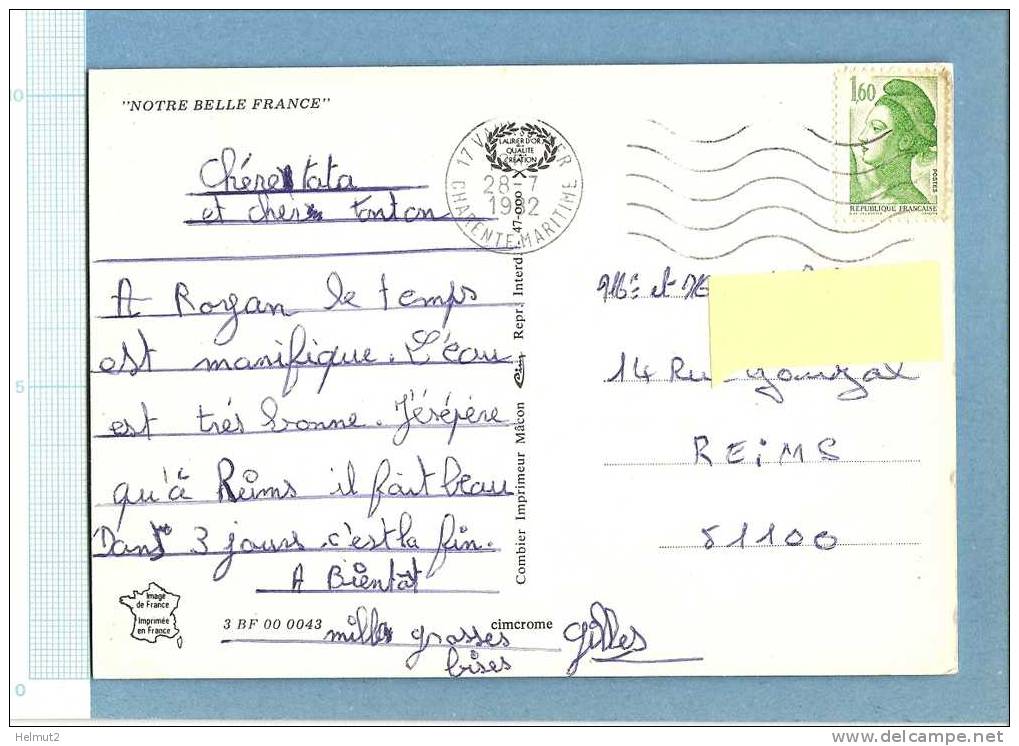 10
5
0
"NOTRE BELLE FRANCE"
Chére tata
et cher tonton
A Royan le temps
est manifique. L'eau
est trés bonne. J'éspère
qu'à Reims il fait beau
Dans 3 jours c'est la fin.
A Bientôt
mille grosses
bises
Gilles
Image
de France
Imprimée
en France
3 BF 00 0043
cimcrome
Combier Imprimeur Mâcon
Repr. Interd. 47-000
LAURIER D'OR
QUALITE
CREATION
17
28-7
CHARENTE-MARITIME
1,60
POSTES
REPUBLIQUE FRANÇAISE
et
14 Ru
REIMS
51100
Helmut2
www.delcampe.net